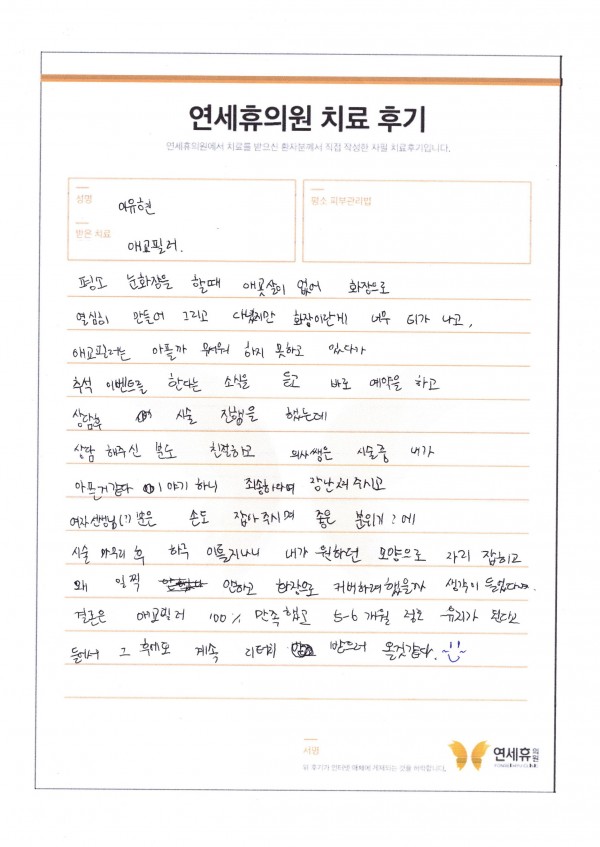 연세휴의원 치료 후기
연세휴의원에서 치료를 받으신 환자분께서 직접 작성한 자필 치료후기입니다.
성명
이유현
받은 치료
애교필러.
평소 피부관리법
평소 눈화장을 할때 애굣살이 없어 화장으로
열심히 만들어 그리고 다녔지만 화장이란게 너무 티가 나고,
애교필러는 아플까 무서워 하지 못하고 있다가
추석 이벤트를 한다는 소식을 듣고 바로 예약을 하고
상담후 시술 진행을 했는데
상담 해주신 분도 친절하고 의사쌤은 시술중 내가
아픈거같다 이야기 하니 죄송하다며 장난쳐주시고
여자선생님(?)분은 손도 잡아주시며 좋은 분위기?에
시술 마무리 후 하루 이틀지나니 내가 원하던 모양으로 자리 잡히고
왜 일찍 안하고 화장으로 커버하려했을까 생각이 들었다ㅠ.
결론은 애교필러 100% 만족했고 5-6개월 정도 유지가 된다고
들어서 그 후에도 계속 리터치 받으러 올것같다.
서명
위 후기가 인터넷 매체에 게재되는 것을 허락합니다.
연세휴의원